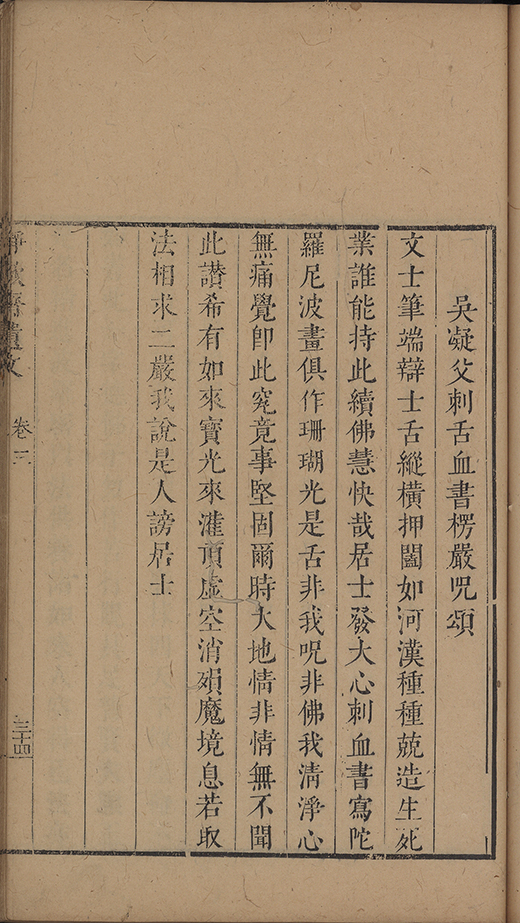 吳凝父刺舌血書楞嚴呪頌
文士筆端辯士舌縱橫押闔如河漢種種兢造生死
業誰能持此續佛慧快哉居士發大心刺血書寫陀
羅尼波畫俱作珊瑚光是舌非我呪非佛我清淨心
無痛覺卽此究竟事堅固爾時大地情非情無不聞
此讚希有如來寶光來灌頂虛空消殞魔境息若取
法相求二嚴我說是人謗居士
遺文
卷三
三十四